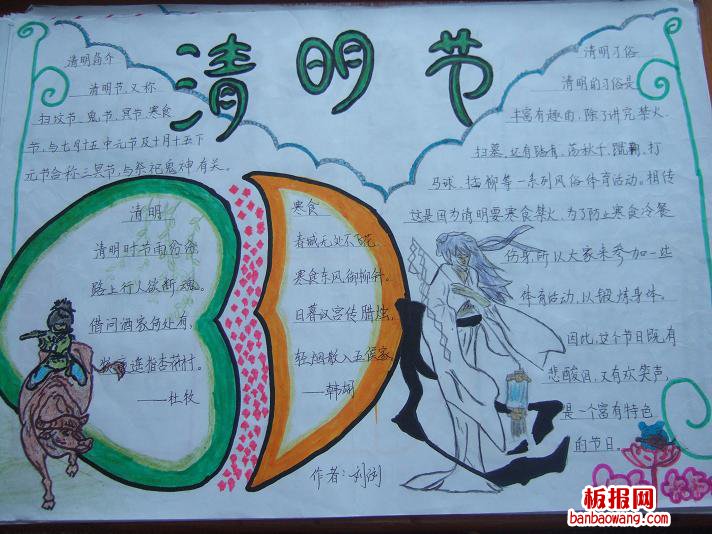 清明节
清明简介
清明节,又称
扫坟节、鬼节、冥节、寒食
节,与七月十五中元节及十月十五下
元节合称三冥节,与祭祀鬼神有关。
清明
清明时节雨纷纷,
路上行人欲断魂。
借问酒家何处有,
牧童遥指杏花村。
——杜牧
寒食
春城无处不飞花,
寒食东风御柳斜。
日暮汉宫传腊烛,
轻烟散入五侯家。
——韩翃
作者:刘
清明习俗
清明的习俗是
丰富有趣的,除了讲究禁火、
扫墓,还有踏青、荡秋千、蹴鞠、打
马球、插柳等一系列风俗体育活动。相传
这是因为清明要寒食禁火,为了防止寒食冷餐
伤身,所以大家来参加一些
体育活动,以锻炼身体。
因此,这个节日既有
悲酸泪,又有欢笑声,
是一个富有特色
的节日。
板报网
banbaowang.com